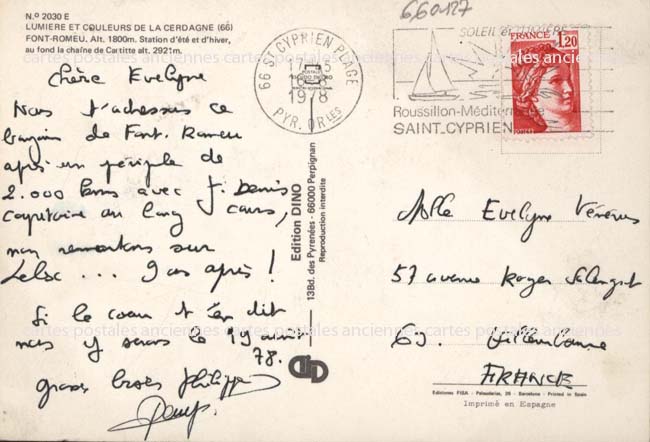 N.º 2030 E
LUMIERE ET COULEURS DE LA CERDAGNE (66)
FONT-ROMEU. Alt. 1800m. Station d'été et d'hiver,
au fond la chaîne de Cartitte alt. 2921m.
cartes postales anciennes cartes postales anciennes cartes postales anciennes
Chère Evelyne
Nous t'adressons ce
de Font. Romeu
après un périple de
2.000 kms avec J. Denis
capitaine au long cours,
nous remontons sur
... 9 ans après !
Si le coeur t'en dit
nous y serons le 19 août
78.
grosses bises Philippe
66 ST CYPRIEN PLAGE
1978
PYR. ORles
660127
SOLEIL
Roussillon-Méditerranée
SAINT.CYPRIEN
FRANCE
1,20
Edition DINO
13Bd. des Pyrenées - 66000 Perpignan
Reproduction interdite
Mlle Evelyne
57 avenue Roger Salengro
69. Villeurbanne
FRANCE
cartes postales anciennes cartes postales anciennes cartes postales anciennes
Ediciones FISA - Palaudarias, 26 - Barcelona - Printed in Spain
Imprimé en Espagne